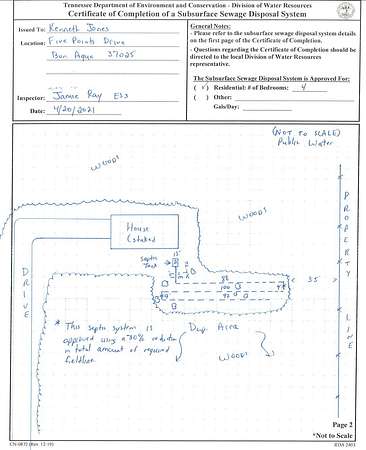 Tennessee Department of Environment and Conservation - Division of Water Resources
Certificate of Completion of a Subsurface Sewage Disposal System
Issued To: Kenneth Jones
Location: Five Points Drive
Bon Aqua 37025
Inspector: Jamie Ray ES3
Date: 4/20/2021
General Notes:
- Please refer to the subsurface sewage disposal system details
on the first page of the Certificate of Completion.
- Questions regarding the Certificate of Completion should be
directed to the local Division of Water Resources
representative.
The Subsurface Sewage Disposal System is Approved For:
(✓) Residential: # of Bedrooms: 4
( ) Other:
Gals/Day:
(NOT TO SCALE)
Public Water
WOODS
WOODS
House
(staked)
PROPERTY
LINE
DRIVE
Septic
Tank
15'
88
100
92
35
* This septic system is
approved using a 30% reduction
in total amount of required
fieldline
Dup. Area
WOODS
Page 2
*Not to Scale
CN-0870 (Rev. 12-19)
RDA 2403